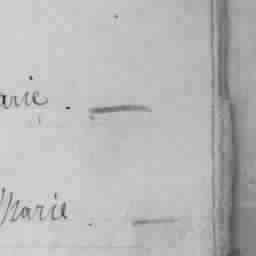 arie . —
Marie . —